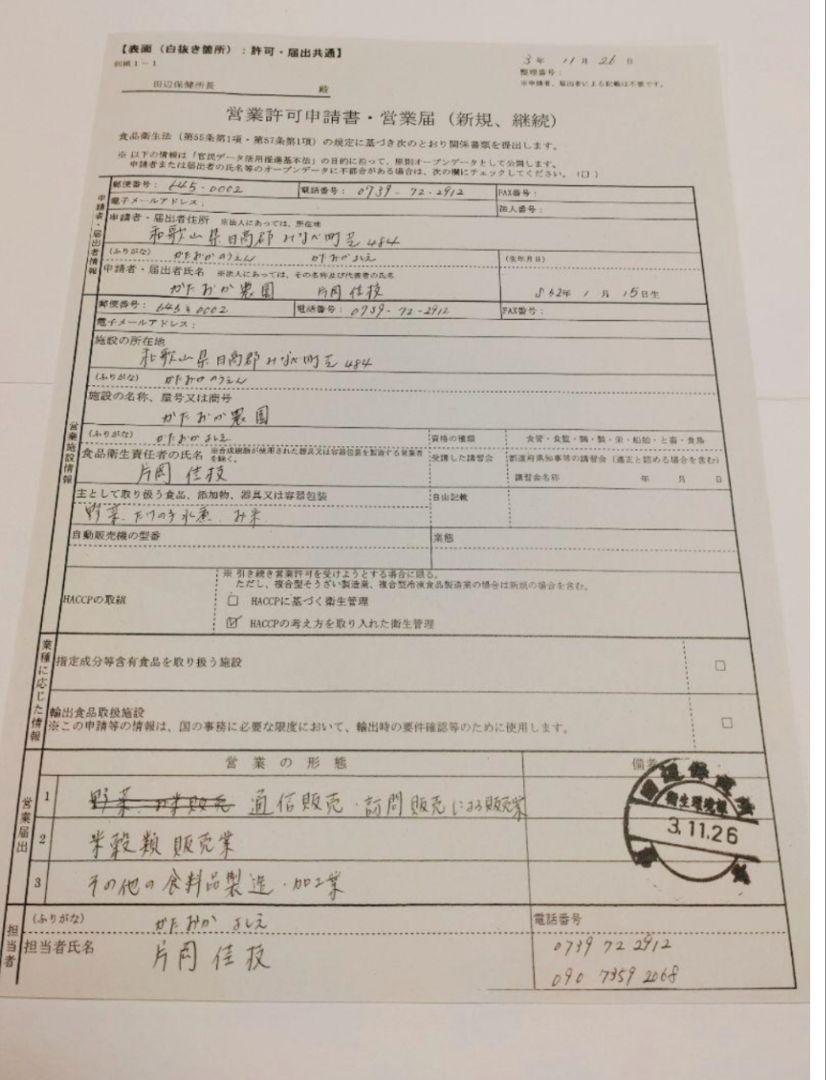 【表面（白抜き箇所）：許可・届出共通】
別紙1－1
3年 11月 26日
整理番号：
※申請者、届出者による記載は不要です。
田辺保健所長 殿
営業許可申請書・営業届（新規、継続）
食品衛生法（第55条第1項・第57条第1項）の規定に基づき次のとおり関係書類を提出します。
※ 以下の情報は「官民データ活用推進基本法」の目的に沿って、原則オープンデータとして公開します。
申請者または届出者の氏名等のオープンデータに不都合がある場合は、次の欄にチェックしてください。（□）
申請者・届出者情報
郵便番号： 645-0002 電話番号： 0739-72-2912 FAX番号：
電子メールアドレス： 法人番号：
申請者・届出者住所 ※法人にあっては、所在地
和歌山県日高郡みなべ町芝484
（ふりがな） かたおかのうえん かたおかよしえ （生年月日）
申請者・届出者氏名 ※法人にあっては、その名称及び代表者の氏名
かたおか農園 片岡佳枝 S52年 1月 15日生
営業施設情報
郵便番号： 645-0002 電話番号： 0739-72-2912 FAX番号：
電子メールアドレス：
施設の所在地
和歌山県日高郡みなべ町芝484
（ふりがな） かたおかのうえん
施設の名称、屋号又は商号
かたおか農園
（ふりがな） かたおかよしえ 資格の種類 食管・食監・調・製・栄・船舶・と畜・食鳥
食品衛生責任者の氏名 ※合成樹脂が使用された器具又は容器包装を製造する営業者を除く。 受講した講習会 都道府県知事等の講習会（適正と認める場合を含む）
片岡佳枝 講習会名称 年 月 日
主として取り扱う食品、添加物、器具又は容器包装 自由記載
野菜、たけのこ水煮、お米
自動販売機の型番 業態
HACCPの取組
※ 引き続き営業許可を受けようとする場合に限る。
ただし、複合型そうざい製造業、複合型冷凍食品製造業の場合は新規の場合を含む。
□ HACCPに基づく衛生管理
☑ HACCPの考え方を取り入れた衛生管理
業種に応じた情報
指定成分等含有食品を取り扱う施設 □
輸出食品取扱施設 □
※この申請等の情報は、国の事務に必要な限度において、輸出時の要件確認等のために使用します。
営業届出
営業の形態 備考
1 野菜、お米販売 通信販売・訪問販売による販売業
2 米穀類販売業
3 その他の食料品製造・加工業
衛生環境課
3.11.26
担当者
（ふりがな） かたおか よしえ 電話番号
担当者氏名 片岡佳枝 0739 72 2912
090 7359 2068